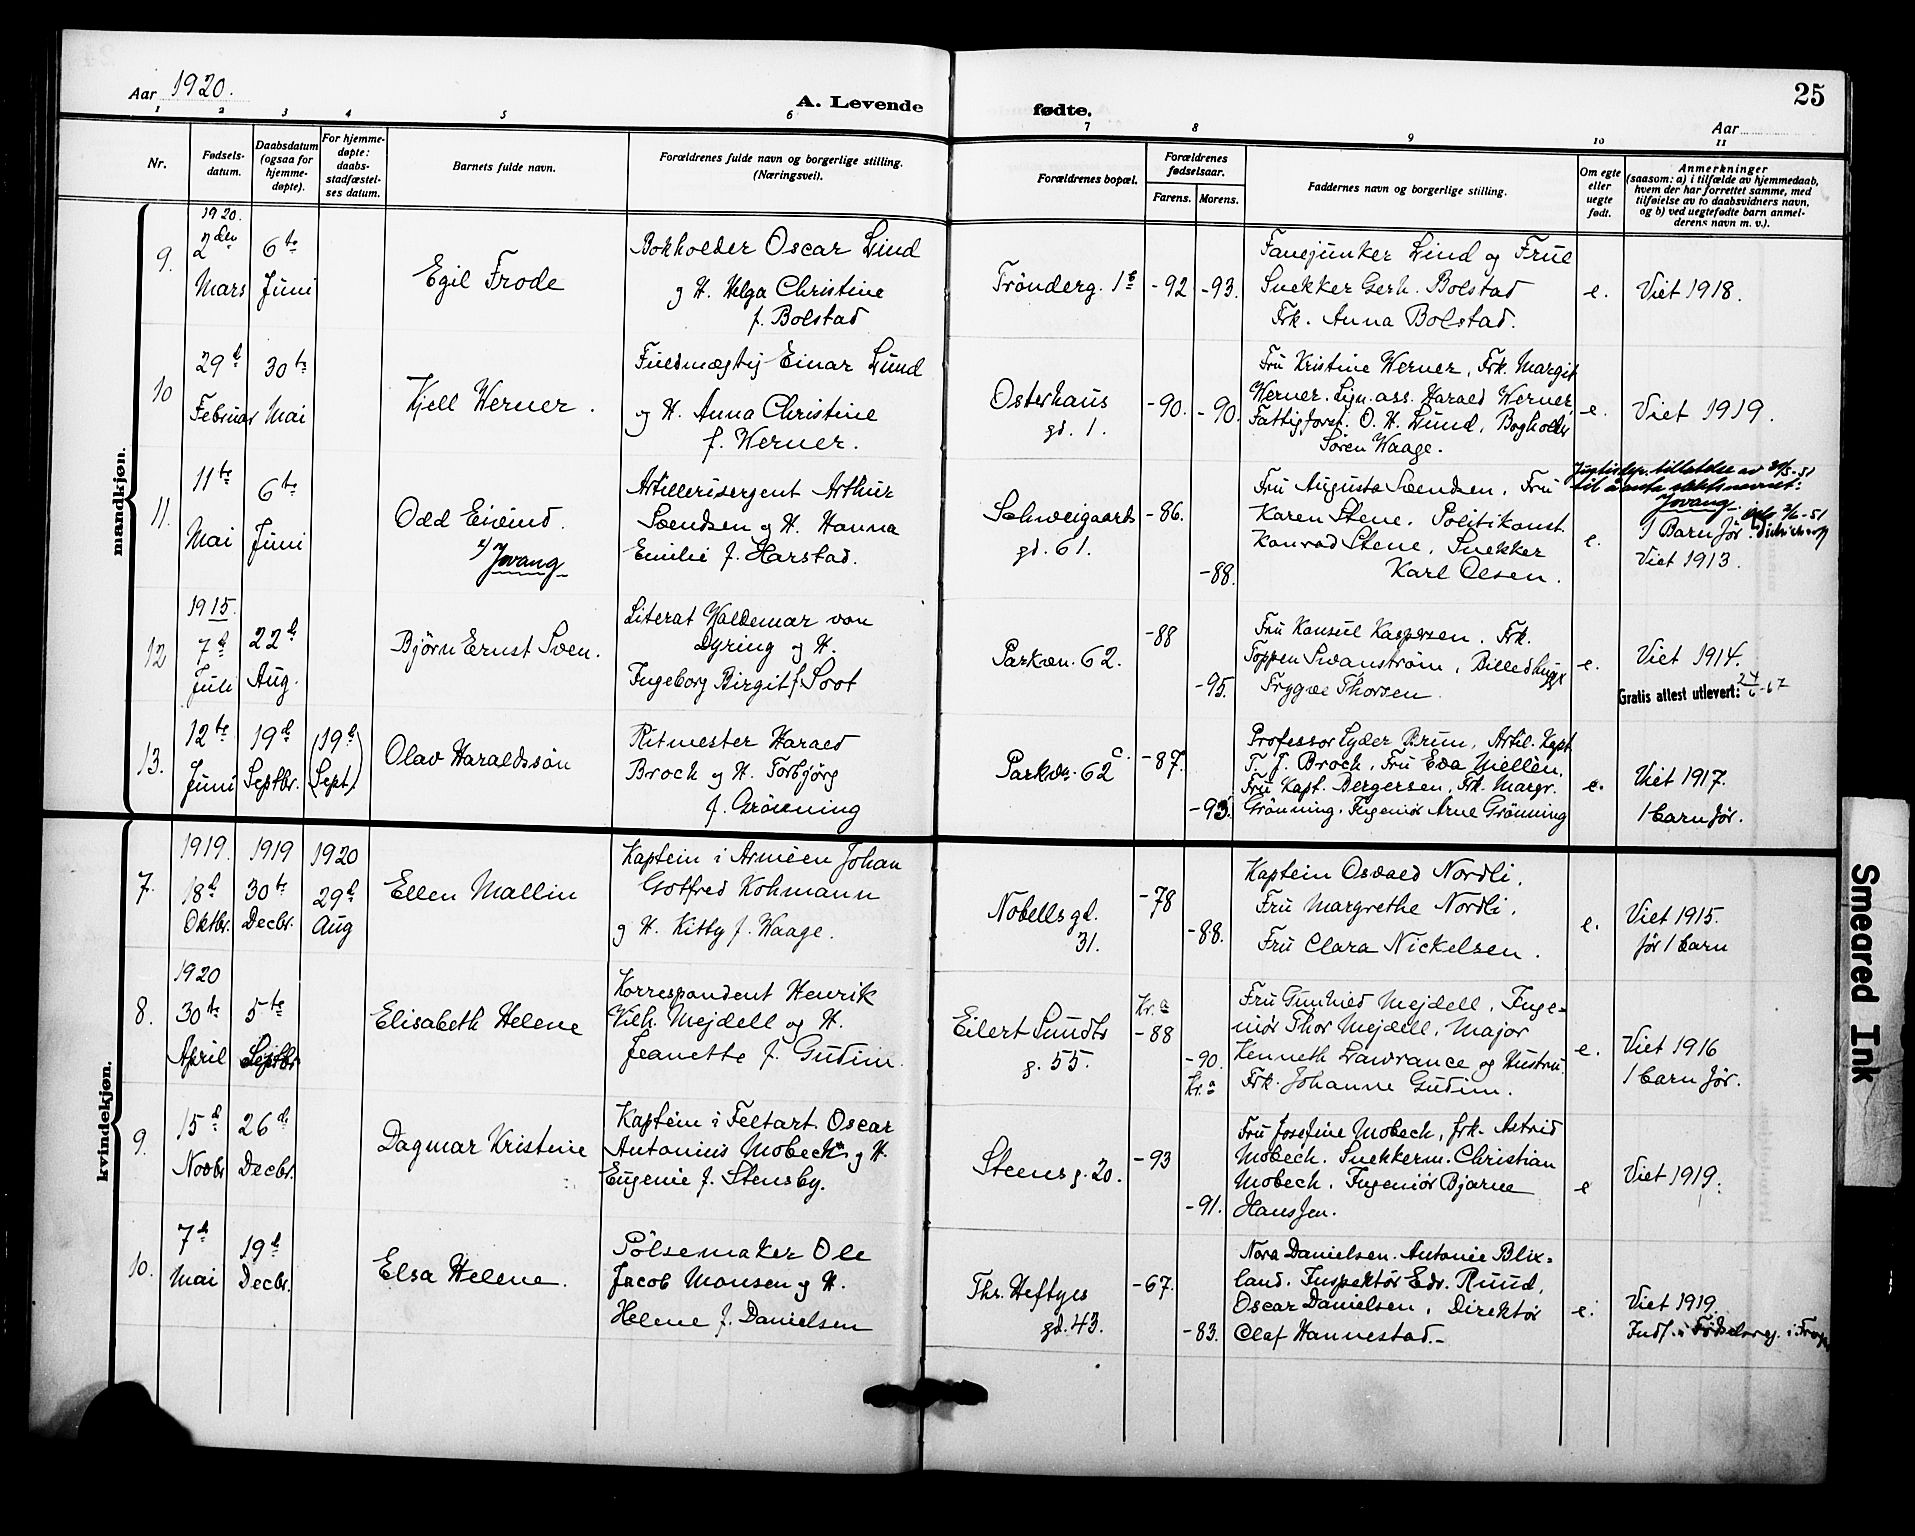 Aar 1920.
A. Levende fødte.
25
Aar
1 2 3 4 5 6 7 8 9 10 11
Nr.
Fødsels-
datum.
Daabsdatum
(ogsaa for
hjemme-
døpte).
For hjemme-
døpte:
daabs-
stadfæstel-
ses datum.
Barnets fulde navn.
Forældrenes fulde navn og borgerlige stilling.
(Næringsvei).
Forældrenes bopæl.
Forældrenes
fødselsaar.
Farens. Morens.
Faddernes navn og borgerlige stilling.
Om egte
eller
uegte
født.
Anmerkninger
(saasom: a) i tilfælde av hjemmedaab,
hvem der har forrettet samme, med
tilføielse av to daabsvidners navn,
og b) ved uegtefødte barn anmel-
derens navn m. v.).
mandkjøn.
9.
1920.
2den
Mars
6te
Juni
Egil Frode
Bokholder Oscar Lind
og H. Helga Christine
f. Bolstad
Trønderg. 1b
-92
-93.
Fanejunker Lind og Frue
Snekker Gerh. Bolstad
Frk. Anna Bolstad.
e.
Viet 1918.
10
29d
Februar
30te
Mai
Kjell Werner.
Fuldmægtig Einar Lund
og H. Anna Christine
f. Werner.
Osterhaus
gd. 1.
-90.
-90.
Fru Kristine Werner, Frk. Margit
Werner. Lign. ass. Harald Werner,
Fattigforst. O. H. Lund, Bogholder
Søren Waage.
e.
Viet 1919.
11.
11te
Mai
6te
Juni
Odd Eivind.
Jvang
Artillerisergent Arthur
Svendsen og H. Hanna
Emilie f. Harstad.
Schweigaards
gd. 61.
-86.
-88.
Fru Augusta Svendsen, Fru
Karen Stene, Politikonst.
Konrad Stene, Snekker
Karl Olsen.
e.
Justisdep. tillatelse av 31/5-51
til å anta slektsnavnet:
Jvang 2/6-51
1 Barn før.
Viet 1913.
12
1915.
7d
Juli
22d
Aug.
Bjørn Ernst Sven.
Literat Waldemar von
Dyring og H.
Ingeborg Birgit f. Soot
Parkvn. 62.
-88
-95.
Fru Konsul Kaspersen. Frk.
Toppen Svanstrøm, Billedhugg.
Trygve Thorsen.
e.
Viet 1914.
Gratis attest utlevert: 24/6-67
13.
12te
Juni
19d
Septbr.
(19d
Sept.)
Olav Haraldssøn
Ritmester Harald
Broch og H. Torbjørg
f. Grønning
Parkvn. 62c.
-87.
-93.
Professor Lyder Brun, Artil. Kapt
T. J. Broch, Fru Eva Mellèn,
Fru Kapt. Bergersen, Frk. Margr.
Grønning, Ingeniør Arne Grønning
e.
Viet 1917.
1 barn før.
kvindekjøn.
7.
1919.
18d
Oktbr.
1919
30te
Decbr.
1920
29d
Aug
Ellen Mallin
Kaptein i Armèen Johan
Gotfred Kohmann
og H. Kitty f. Waage.
Nobellsgd.
31.
-78
-88.
Kaptein Osvald Nordli.
Fru Margrethe Nordli.
Fru Clara Nickelsen.
e.
Viet 1915.
før 1 barn
8.
1920
30te
April
5te
Septbr.
Elisabeth Helene
Korrespondent Henrik
Vilh. Mejdell og H.
Jeanette f. Gudim.
Eilert Sundts
g. 55.
Kr.a
-88
-90.
Kr.a
Fru Gunhild Mejdell, Inge-
niør Thor Mejdell, Major
Kenneth Lawrance og Hustru.
Frk. Johanne Gudim.
e.
Viet 1916
1 barn før.
9.
15d
Novbr
26d
Decbr.
Dagmar Kristine
Kaptein i Feltart. Oscar
Antonius Mobech og H.
Eugenie f. Stensby.
Steensg. 20.
-93
-91.
Fru Josefine Mobech, frk. Astrid
Mobech. Snekkerm. Christian
Mobech. Ingeniør Bjarne
Hansen.
e
Viet 1919.
10.
7d
Mai
19d
Decbr.
Elsa Helene.
Pølsemaker Ole
Jacob Monsen og H.
Helene f. Danielsen
Thr. Heftyes
gd. 43.
-67.
-83.
Nora Danielsen. Antonie Blix-
land. Inspektør Edv. Ruud,
Oscar Danielsen, Direktør
Olaf Hannestad.-
e.
Viet 1919.
Indf. i Fødselsreg. i
Smeared Ink